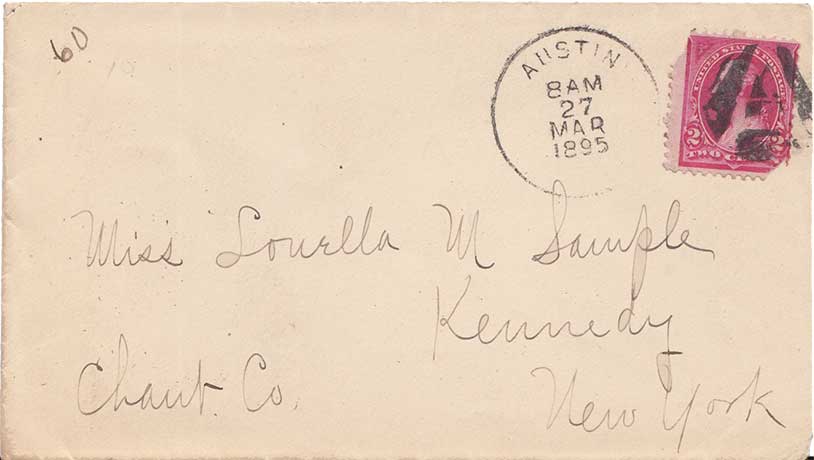 60
AUSTIN
8AM
27
MAR
1895
UNITED STATES POSTAGE
2 2
TWO
Miss Louella M Sample
Kennedy
Chaut. Co. New York